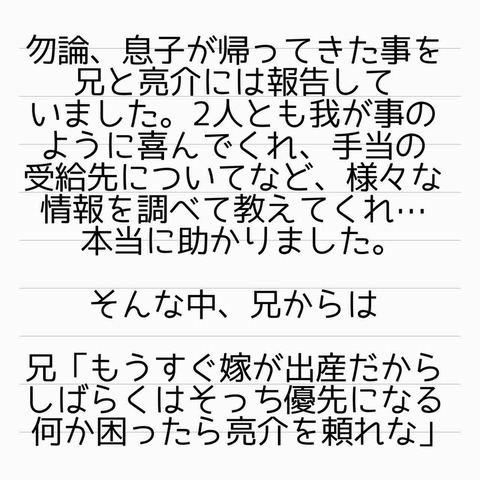 勿論、息子が帰ってきた事を
兄と亮介には報告して
いました。2人とも我が事の
ように喜んでくれ、手当の
受給先についてなど、様々な
情報を調べて教えてくれ…
本当に助かりました。
そんな中、兄からは
兄「もうすぐ嫁が出産だから
しばらくはそっち優先になる
何か困ったら亮介を頼れな」